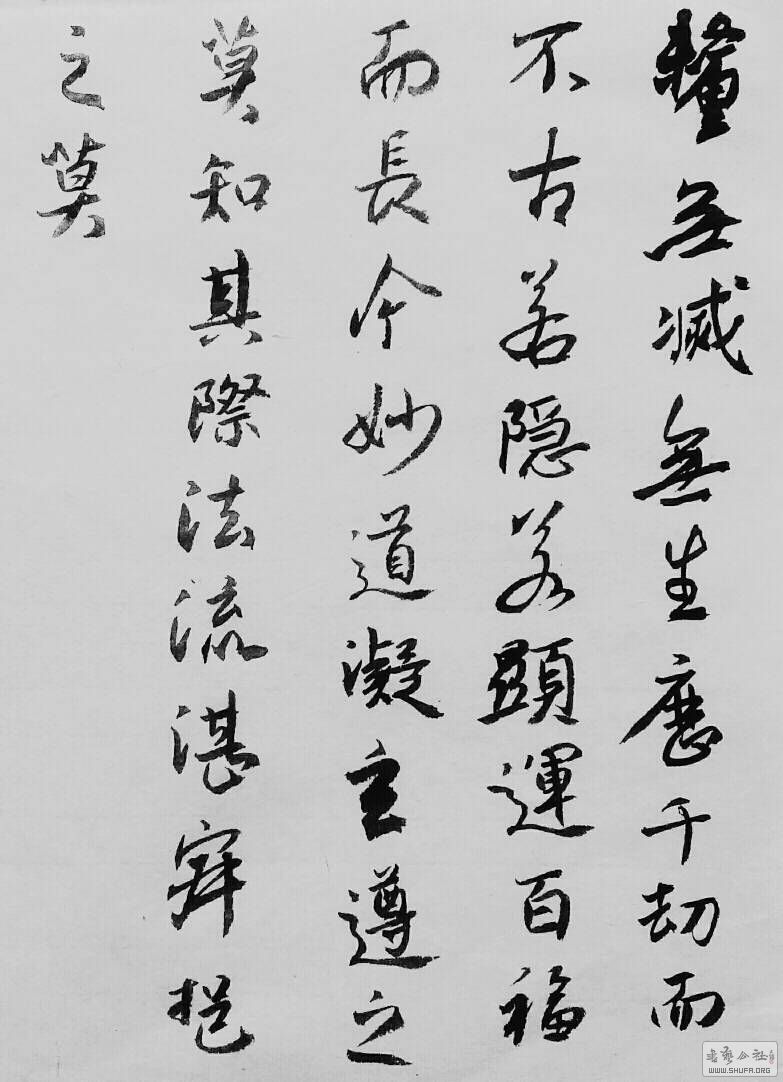 釐無滅無生歷千劫而
不古若隱若顯運百福
而長今妙道凝玄遵之
莫知其際法流湛寂挹
之莫
書藝公社
WWW.SHUFA.ORG